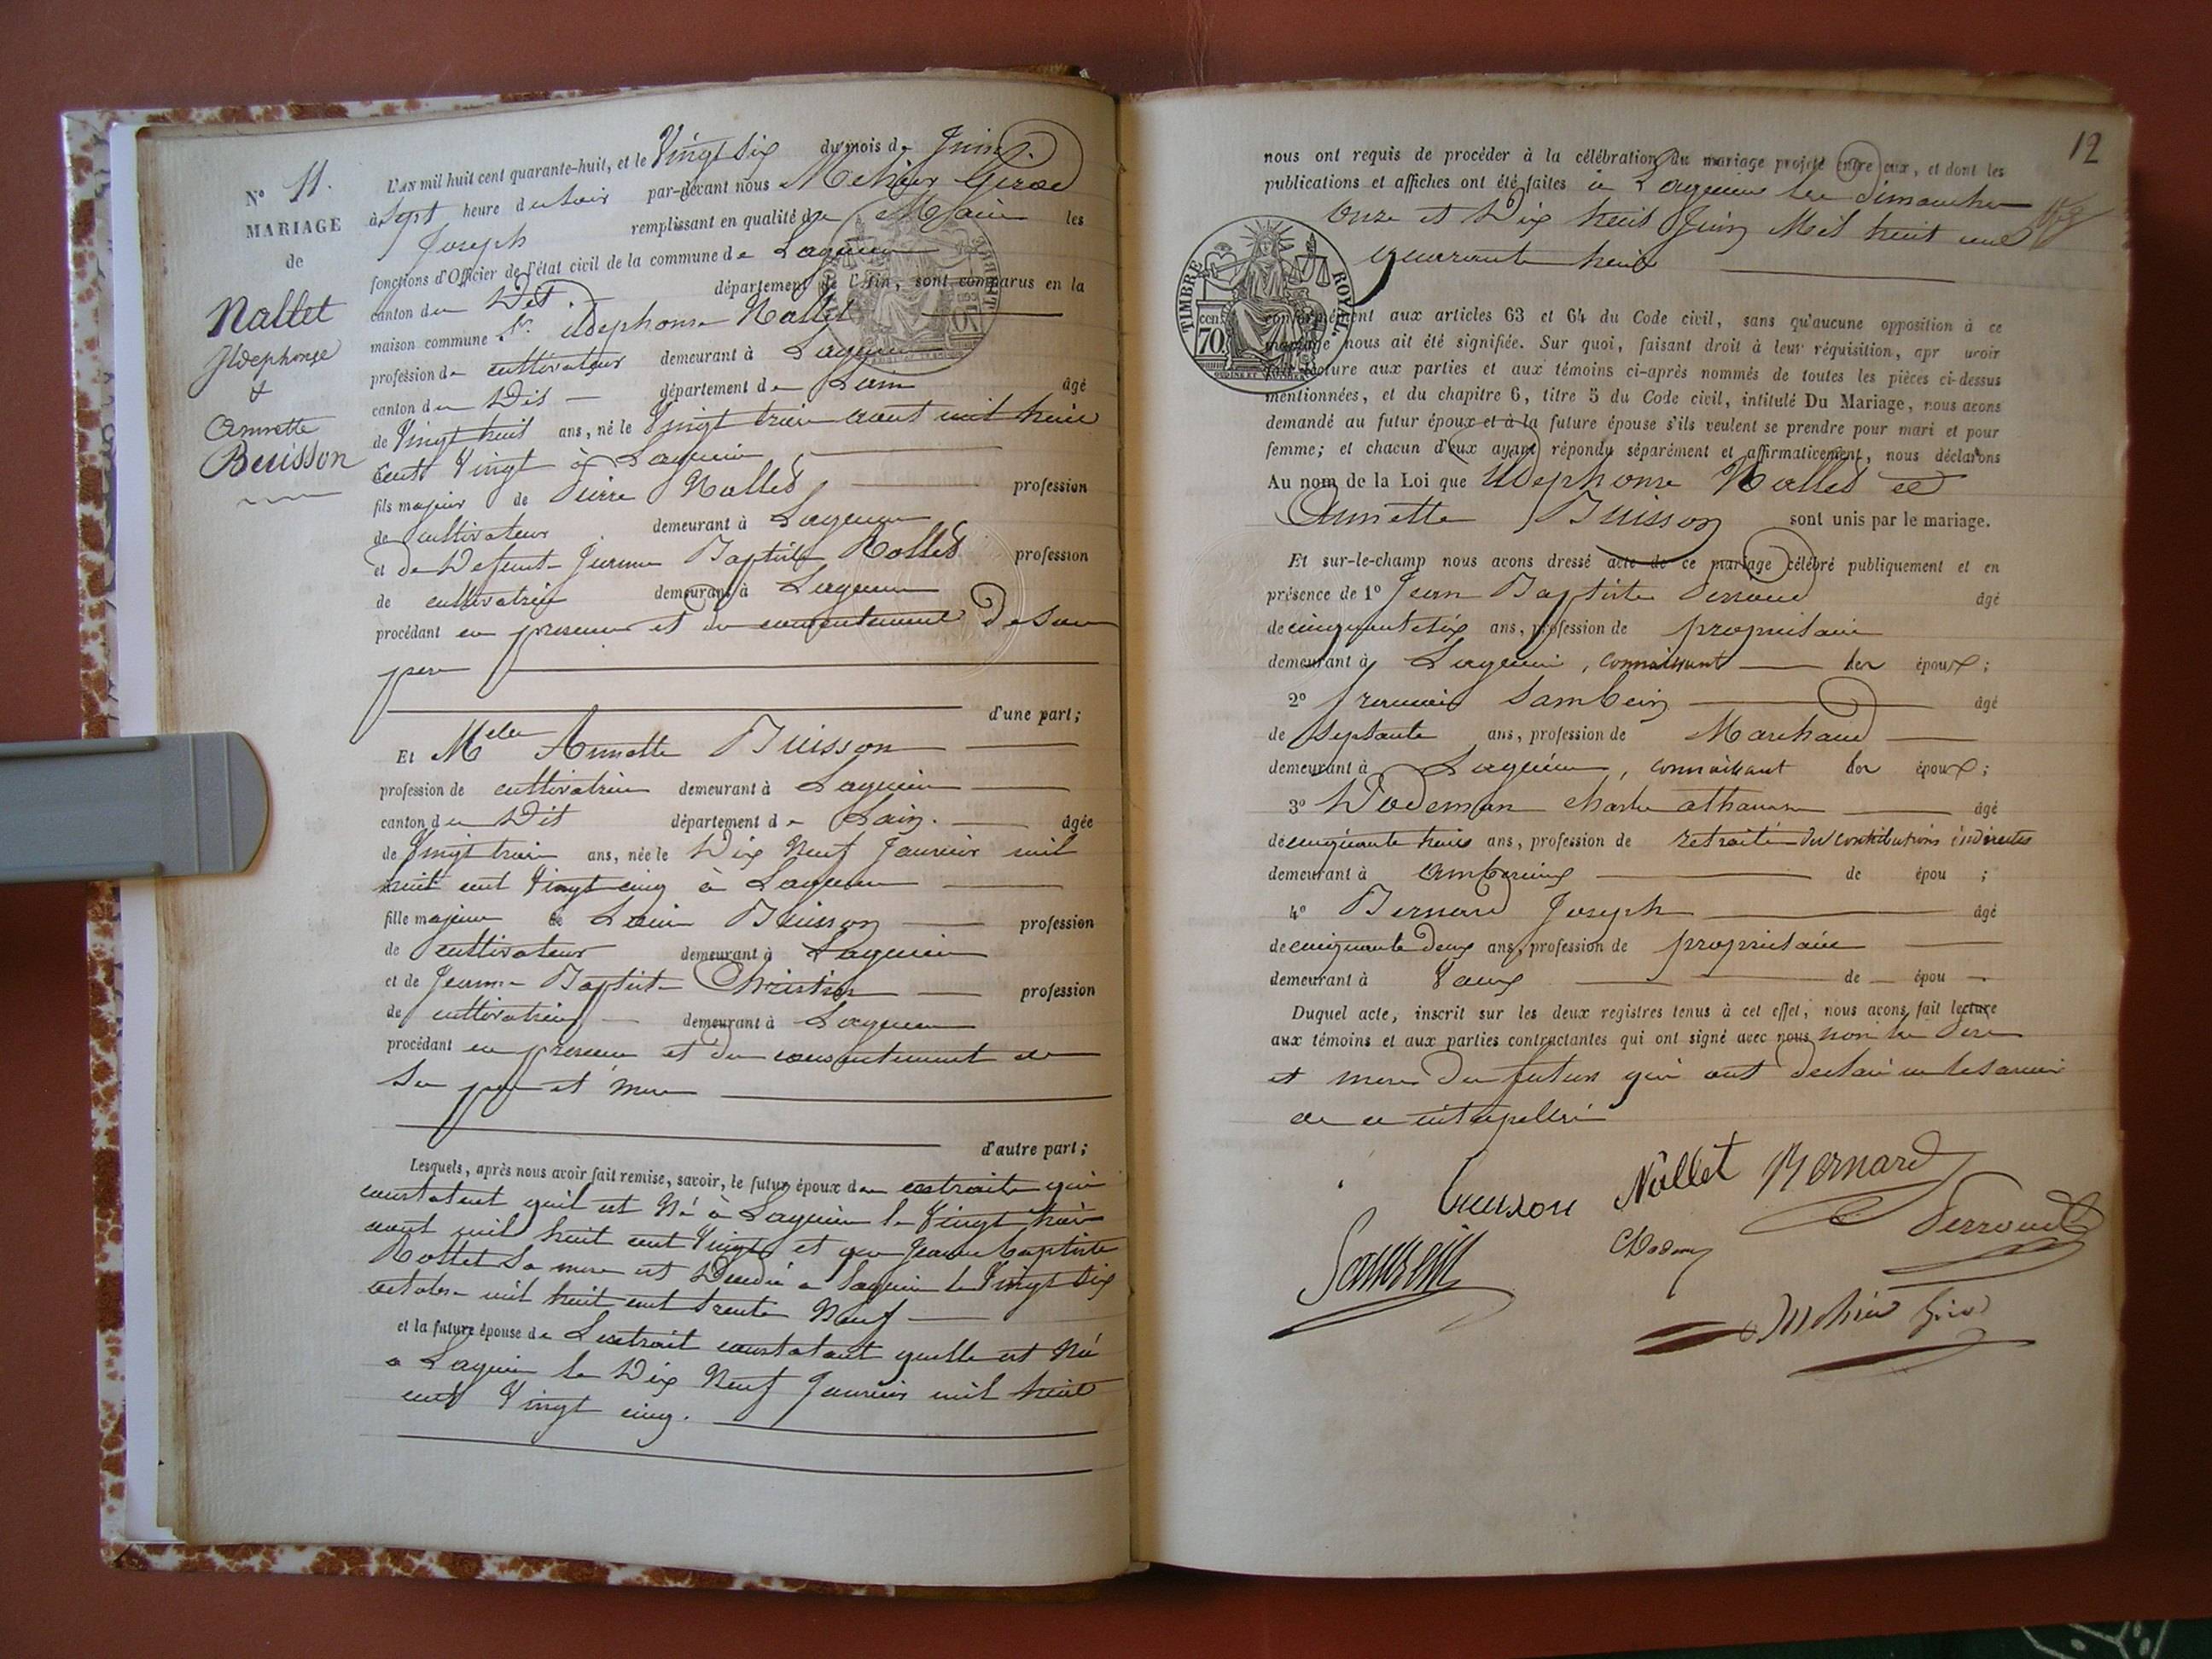 N° 11.
MARIAGE
de
Nallet
Ildephonse
&
Annette
Buisson
L'AN mil huit cent quarante-huit, et le Vingt Six du mois de Juin
à Sept heure du soir par-devant nous Méhier Girod
Joseph remplissant en qualité de Maire les
fonctions d'Officier de l'état civil de la commune de Lagnieu
canton du Dit département de l'Ain, sont comparus en la
maison commune Sr. ildephonse Nallet
profession de cultivateur demeurant à Lagnieu
canton du Dit département de Lain âgé
de Vingt huit ans, né le Vingt trois aout mil huit
cent Vingt à Lagnieu
fils majeur de Pierre Nallet profession
de cultivateur demeurant à Lagnieu
et de Defunte Jeanne Baptiste Rollet profession
de cultivatrice demeurant à Lagnieu
procédant en presence et du consentement De son
pere
d'une part;
Et Melle Annette Buisson
profession de cultivatrice demeurant à Lagnieu
canton du Dit département de Lain. âgée
de Vingt trois ans, née le Dix Neuf Janvier mil
huit cent Vingt cinq à Lagnieu
fille majeure de Louis Buisson profession
de cultivateur demeurant à Lagnieu
et de Jeanne Baptiste Christin profession
de cultivatrice demeurant à Lagnieu
procédant en presence et du consentement de
Se pere et mere
d'autre part;
Lesquels, après nous avoir fait remise, savoir, le futur époux de extraits qui
constatent quil est Né à Lagnieu le Vingt trois
aout mil huit cent Vingt et que Jeanne baptiste
Rollet Sa mere est Décédé a Lagnieu le Vingt Six
octobre mil huit cent trente Neuf
et la future épouse de Lextrait constatant quelle est Né
a Lagnieu le Dix Neuf Janvier mil huit
cent Vingt cinq.
12
nous ont requis de procéder à la célébration du mariage projeté entre eux, et dont les
publications et affiches ont été faites à Lagnieu les dimanches
Onze et Dix huit Juin Mil huit cent
quarante huit
TIMBRE ROYAL.
cen. 70
conformément aux articles 63 et 64 du Code civil, sans qu'aucune opposition à ce
mariage nous ait été signifiée. Sur quoi, faisant droit à leur réquisition, apr avoir
fait lecture aux parties et aux témoins ci-après nommés de toutes les pièces ci-dessus
mentionnées, et du chapitre 6, titre 5 du Code civil, intitulé Du Mariage, nous avons
demandé au futur époux et à la future épouse s'ils veulent se prendre pour mari et pour
femme; et chacun d'eux ayant répondu séparément et affirmativement, nous déclarons
Au nom de la Loi que Ildephonse Nallet et
Annette Buisson sont unis par le mariage.
Et sur-le-champ nous avons dressé acte de ce mariage célébré publiquement et en
présence de 1° Jean Baptiste Perroud âgé
de cinquante six ans, profession de propriétaire
demeurant à Lagnieu, connaissant les époux;
2° Sambein âgé
de Septante ans, profession de Marchand
demeurant à Lagnieu, connaissant les époux;
3° Dodeman charles athanase âgé
de cinquante trois ans, profession de retraité des contributions indirectes
demeurant à Amberieux de épou ;
4° Bernard Joseph âgé
de cinquante deux ans, profession de propriétaire
demeurant à Vaux de épou
Duquel acte, inscrit sur les deux registres tenus à cet effet, nous avons fait lecture
aux témoins et aux parties contractantes qui ont signé avec nous non les Pere
et mere Du futurs qui ont declaré ne le savoir
de ce interpellé
buisson Nallet Bernard
Sambein Perroud
Méhier Girod